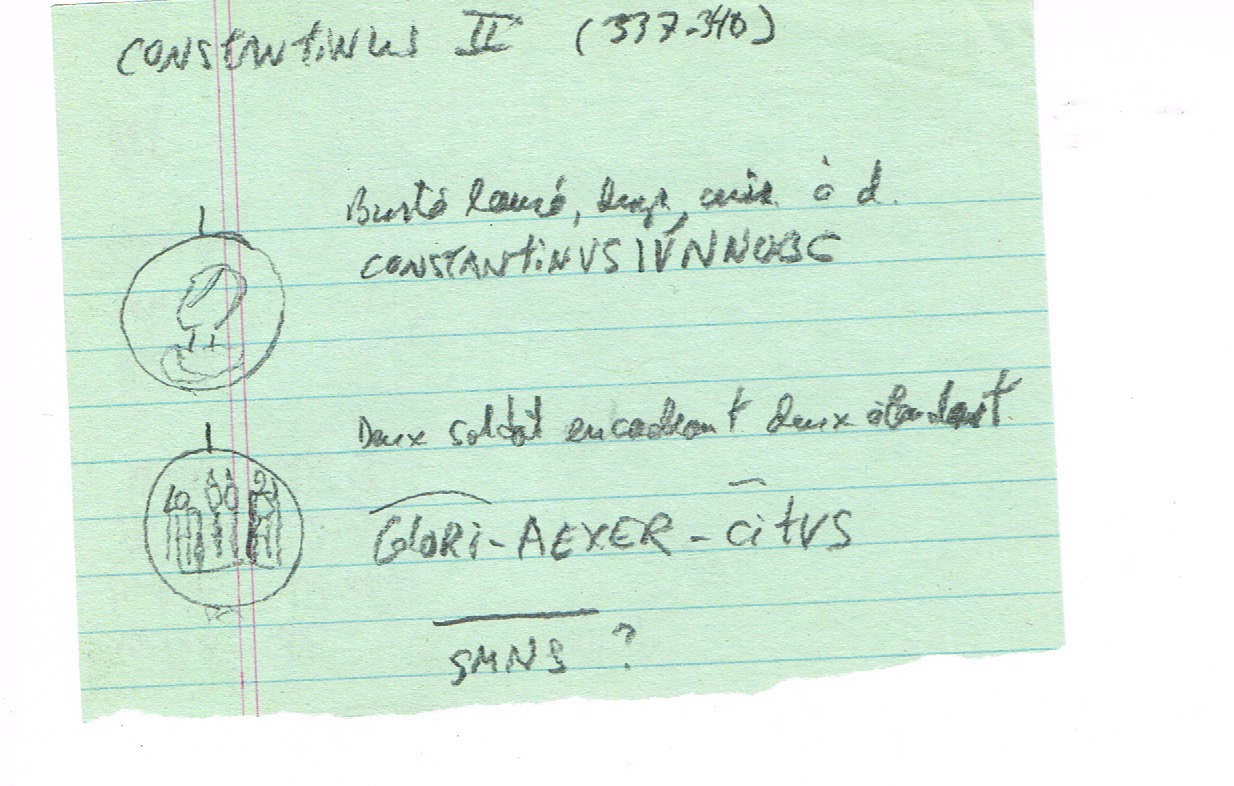 CONSTANTINUS II (337-340)
Busté lauré, drap, cuir. à d.
CONSTANTINVS IVNNOBC
Deux soldat encadrant deux étendart.
GLORI-AEXER-CITVS
SMNS ?